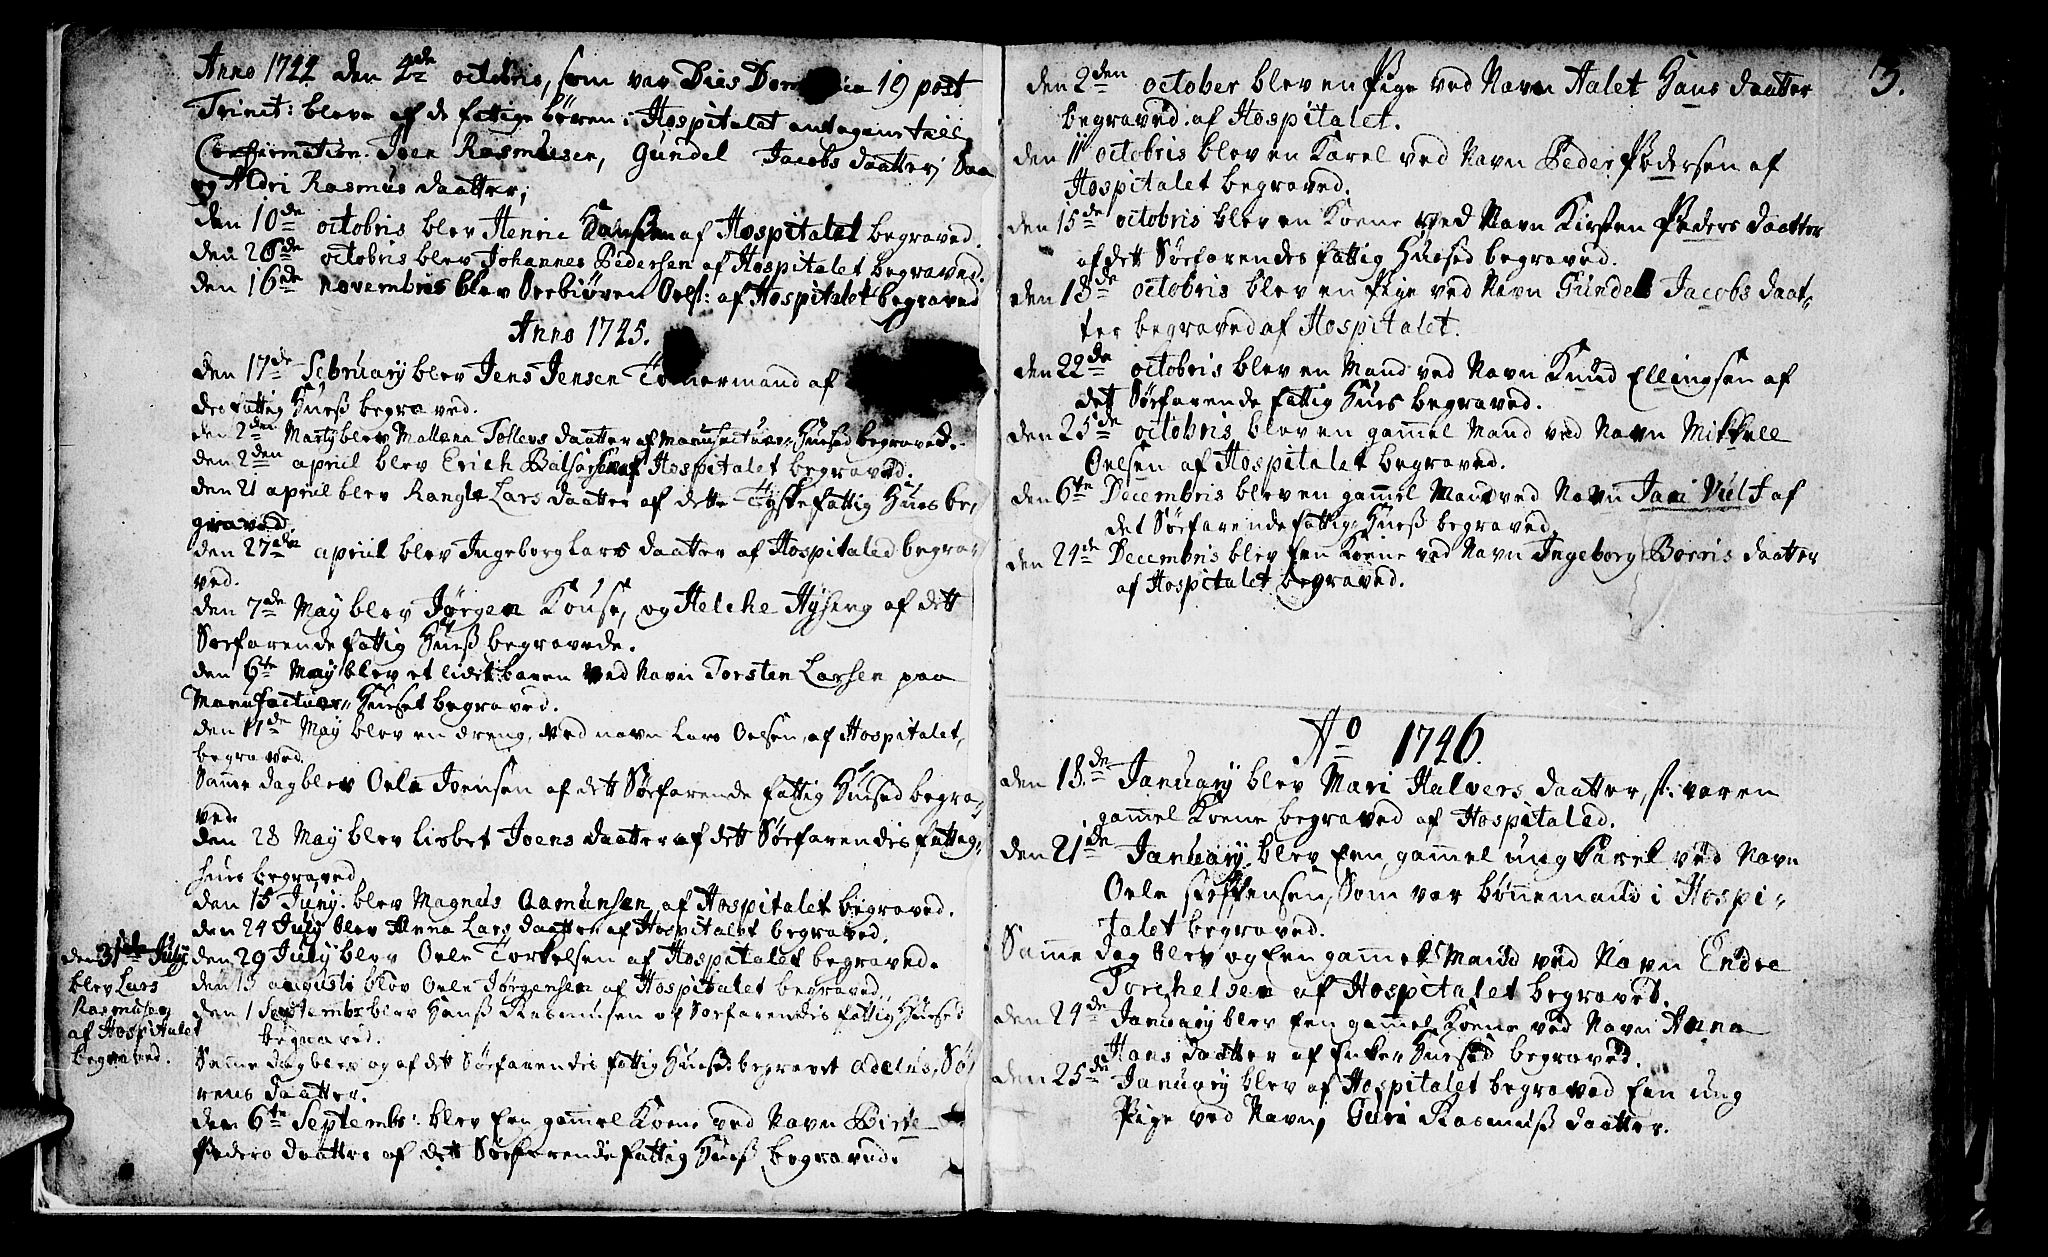 Anno 1744 den 4de octobris, som var Dies Dominica 19 post
Trinit: bleve af de fattige børen i Hospitalet antagene till
Confirmation. Joen Rasmusen, Gundel Jacobs daatter; Saa
og Aldri Rasmus daatter;
den 10de octobris blev Henric Hansen af Hospitalet begraved.
den 26de octobris blev Johannes Pedersen af Hospitalet begraved.
den 16de novembris blev Serbiøren Oels: af Hospitalet begraved
Anno 1745.
den 17de February blev Jens Jensen Tømermand af
des fattig Huuß begraved.
den 2den Marty blev Mallena Tollevs daatter af Manufactuer-Huused begraved.
den 2den april blev Erich af Hospitalet begraved.
den 21 april blev Rangle Lars daatter af dette Tyske fattig Huus be,
graved.
den 27den april blev Ingeborg Lars daatter af Hospitaled begra,
ved.
den 7de May blev Jørgen Kouse, og Helche Hysing af dett
Sørfarende fattig Huuß begravede.
den 6te May blev et lidet baren ved Navn Torsten Larsen paa
Manufactuer-Huuset begraved.
den 11de May blev en dreng, ved navn Lars Oelsen, af Hospitalet,
begraved.
Samme dag blev Oele Joensen af dett Sørfarende fattig Huused begra,
ved.
den 28 May blev Lisbet Joens daatter af dett Sørfarendes fattig,
huus begraved,
den 15 Juny. blev Magnus Aamunsen, af Hospitalet begraved.
den 24 July blev Anna Lars daatter af Hospitalet begraved.
den 29 July blev Oele Torkelsen af Hospitalet begraved.
den 31te July
blev Lars
Rasmusen
af Hospitalet
begraved.
den 15 augusti blev Oele Jørgensen af Hospitalet begraved
den 1 Septembr blev Hanß Rasmusen af Sørfarendes fattig Huused
begraved.
Samme dag blev og af dett Sørfarendes fattig Huused begravet Adelus, Sø,
rens daatter.
den 6te Septembs: blev Een gamel Koene ved Navn Birte
Peders daatter af dett Sørfarende fattig Huuß begraved.
3.
den 2den october blev en Pige ved Navn Aalet Hans daatter
begraved af Hospitalet.
den 11 octobris blev en Karel ved Navn Peder Pedersen af
Hospitalet begraved.
den 15de octobris blev en Koene ved Navn Kirsten Peders daatter
af dett Sørfarendes fattig Huused begraved.
den 18de octobris blev en Pige ved Navn Gundel Jacobs daat,
ter begraved af Hospitalet.
den 22de octobris blev en Mand ved Navn Knud Ellingsen af
det Sørfarende fattig Huus begraved.
den 25de octobris blev en gamel Mand ved Navn Mikkell
Oelsen af Hospitalet begraved.
den 6te Decembris blev en gamel Mand ved Navn Jaen Vulf af
det Sørfarende fattig-Hueß begraved.
den 24de Decembris blev Een Koene ved Navn Ingeborg Borris daatter
af Hospitalet begraved.
Ao 1746.
den 18de January blev Mari Halvers daatter, s: var en
gamel Koene begraved af Hospitaled.
den 21de January. blev Een gamel ung Karel ved Navn
Oele Steffensen, Som var bønnemand i Hospi-
talet begraved.
Samme dag blev og Een gamel Mand ved Navn Endre
Torchelsen af Hospitalet begravet.
den 24de January blev Een gamel Koene ved Navn Anna
Hans daatter af Enker Huused begraved.
den 25de January blev af Hospitalet begraved Een ung
Pige ved Navn, Guri Rasmuß daatter.